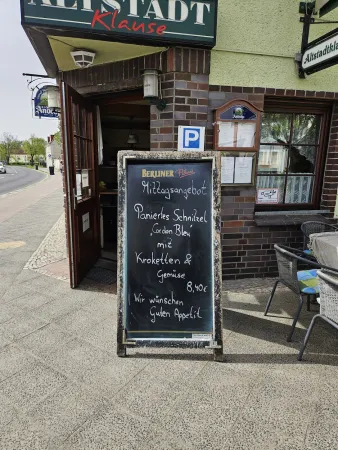 ALTSTADT
Klause
Altstadtkl
P
BERLINER Pilsner
Mittagsangebot
Paniertes Schnitzel
"Cordon Bleu"
mit
Kroketten &
Gemüse
8,40€
Wir wünschen
Guten Appetit